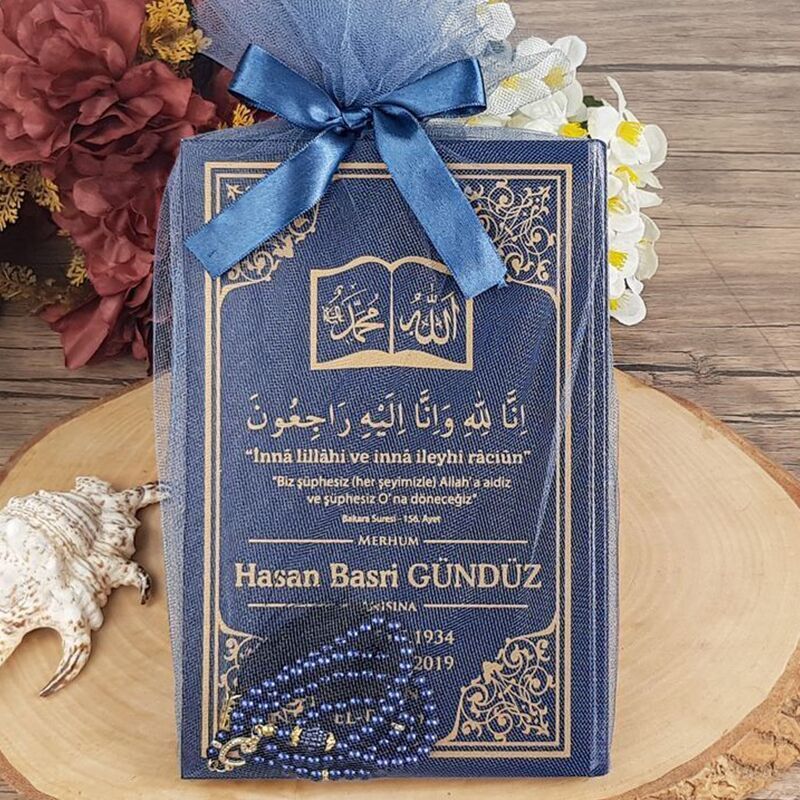 محمد ﷺ الله
اِنَّا لِلّٰهِ وَاِنَّا اِلَيْهِ رَاجِعُونَ
“İnnâ lillâhi ve innâ ileyhi râciûn”
“Biz şüphesiz (her şeyimizle) Allah'a aidiz
ve şüphesiz O'na döneceğiz”
Bakara Suresi - 156. Ayet
MERHUM
Hasan Basri GÜNDÜZ
1934
2019